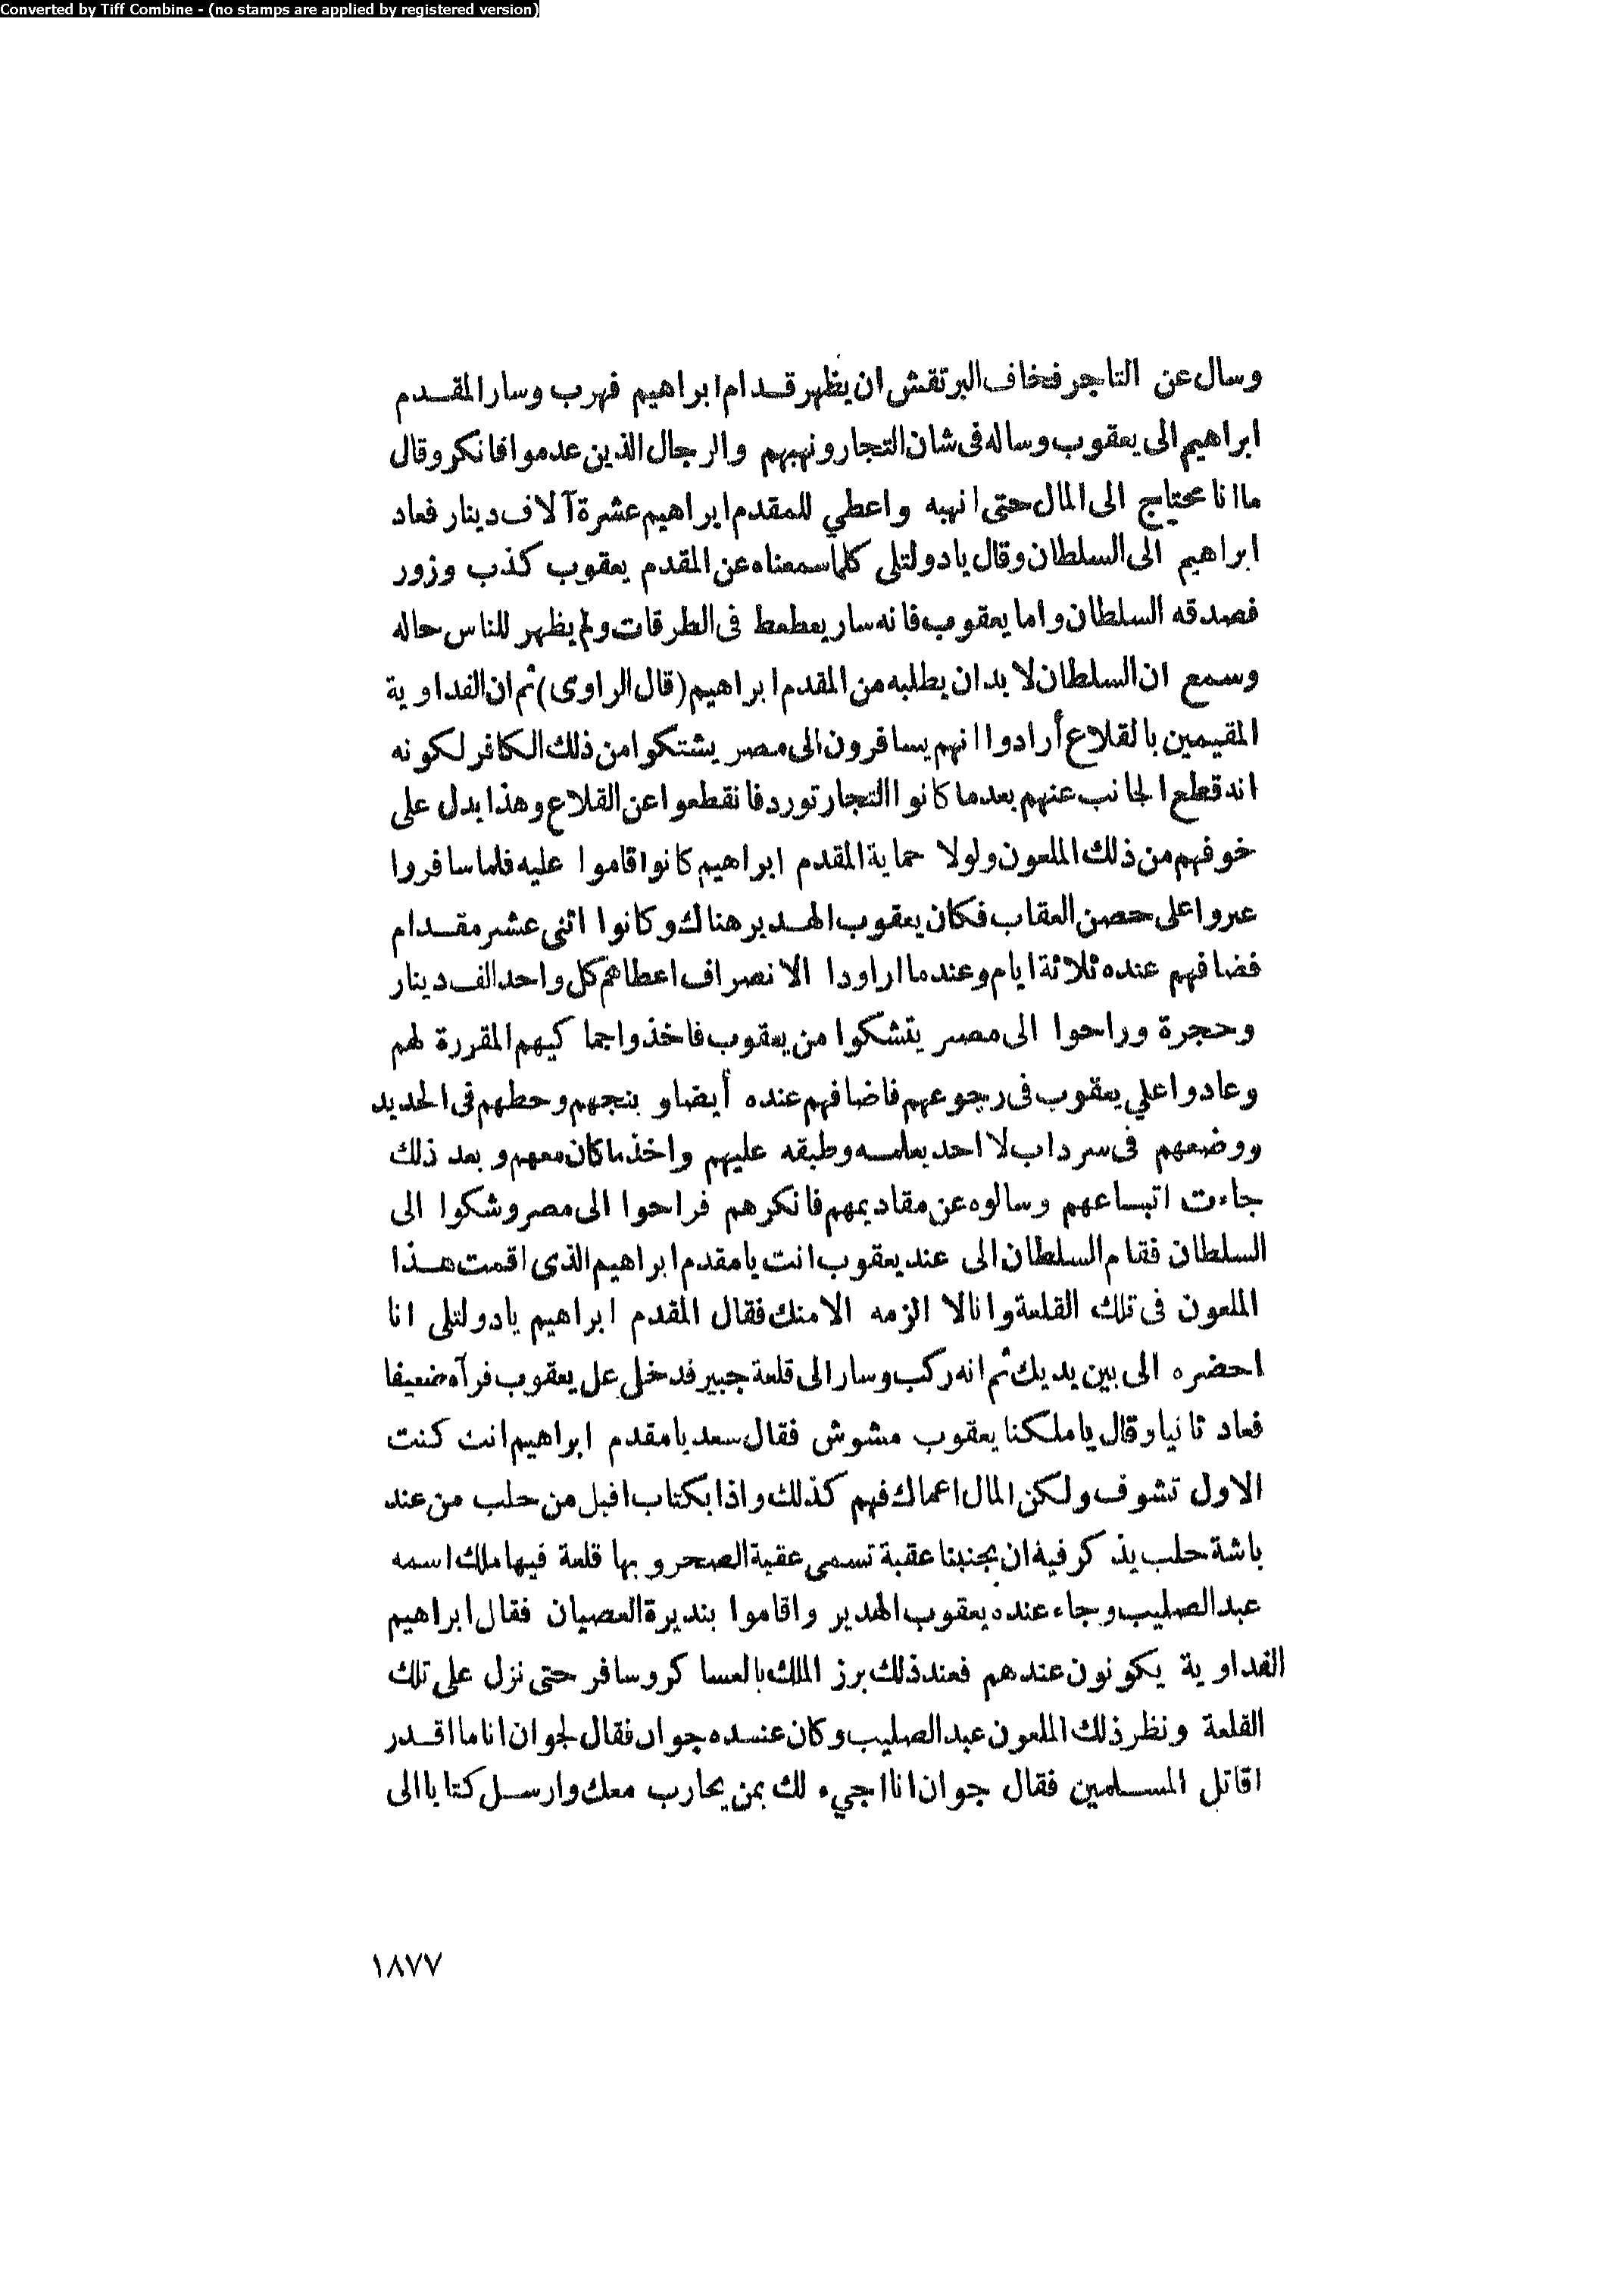 Converted by Tiff Combine - (no stamps are applied by registered version)
وسال عن التاجر فخاف البرتقش ان يظهر قدام ابراهيم فهرب وسار المقدم
ابراهيم الى يعقوب وساله فى شان التجار ونهبهم والرجال الذين عدموا فانكر وقال
ما انا محتاج الى المال حتى انهبه واعطي للمقدم ابراهيم عشرة آلاف دينار فعاد
ابراهيم الى السلطان وقال يا دولتلى كلما سمعناه عن المقدم يعقوب كذب وزور
فصدقه السلطان واما يعقوب فانه سار يعطعط فى الطرقات ولم يظهر للناس حاله
وسمع ان السلطان لا بد ان يطلبه من المقدم ابراهيم (قال الراوى) ثم ان الفداوية
المقيمين بالقلاع أرادوا انهم يسافرون الى مصر يشتكوا من ذلك الكافر لكونه
انه قطع الجانب عنهم بعد ما كانوا التجار تورد فانقطعوا عن القلاع وهذا يدل على
خوفهم من ذلك الملعون ولولا حماية المقدم ابراهيم كانوا قاموا عليه فلما سافروا
عبروا على حصن العقاب فكان يعقوب الهدير هناك وكانوا اثنى عشر مقدام
فضافهم عنده ثلاثة ايام وعندما اراودا الانصراف اعطاهم كل واحد الف دينار
وحجرة وراحوا الى مصر يتشكوا من يعقوب فاخذوا جماكيهم المقررة لهم
وعادوا علي يعقوب فى رجوعهم فاضافهم عنده أيضاو بنجهم وحطهم فى الحديد
ووضعهم فى سرداب لا احد يعلمه وطبقه عليهم واخذ ما كان معهم و بعد ذلك
جاءت اتباعهم وسالوه عن مقاديمهم فانكرهم فراحوا الى مصر وشكوا الى
السلطان فقام السلطان الى عند يعقوب انت يا مقدم ابراهيم الذى اقمت هذا
الملعون فى تلك القلعة وانا لا الزمه الا منك فقال المقدم ابراهيم يا دولتلى انا
احضره الى بين يديك ثم انه ركب وسار الى قلعة جبير فدخل عل يعقوب فرآه ضعيفا
فعاد ثانيا وقال يا ملكنا يعقوب مشوش فقال سعد يا مقدم ابراهيم انت كنت
الاول تشوف ولكن المال اعماك فهم كذلك واذا بكتاب اقبل من حلب من عند
باشة حلب يذكر فيه ان بجنبنا عقبة تسمى عقبة الصحرو بها قلعة فيها ملك اسمه
عبد الصليب وجاء عنده يعقوب الهدير واقاموا بنديرة العصيان فقال ابراهيم
الفداوية يكونون عندهم فعند ذلك برز الملك بالعساكر وسافر حتى نزل على تلك
القلعة ونظر ذلك الملعون عبد الصليب وكان عنده جوان فقال لجوان انا ما اقدر
اقاتل المسلمين فقال جوان انا اجيء لك بمن يحارب معك وارسل كتابا الى
١٨٧٧